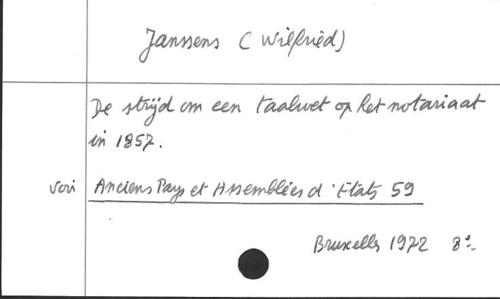 Janssens (Wilfried)
De strijd om een taalwet op het notariaat
in 1857.
voir Anciens Pays et Assemblées d'Etats 59
Bruxelles 1972 8°.